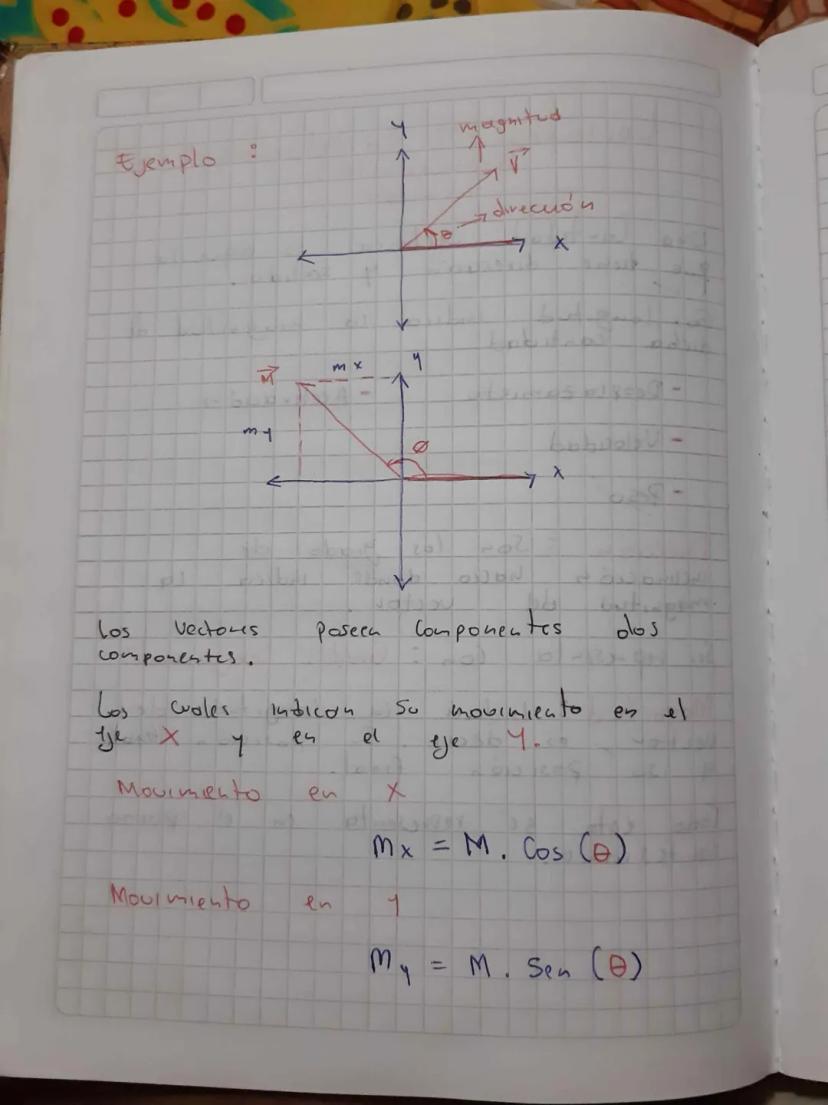 Ejemplo :
y
magnitud
V
dirección
θ
x
M
mx
y
my
Ø
x
Los vectores poseen componentes dos
componentes.
Los cuales indican su movimiento en el
eje X y en el eje Y.
Movimiento en X
mx = M . Cos (θ)
Movimiento en Y
my = M . Sen (θ)